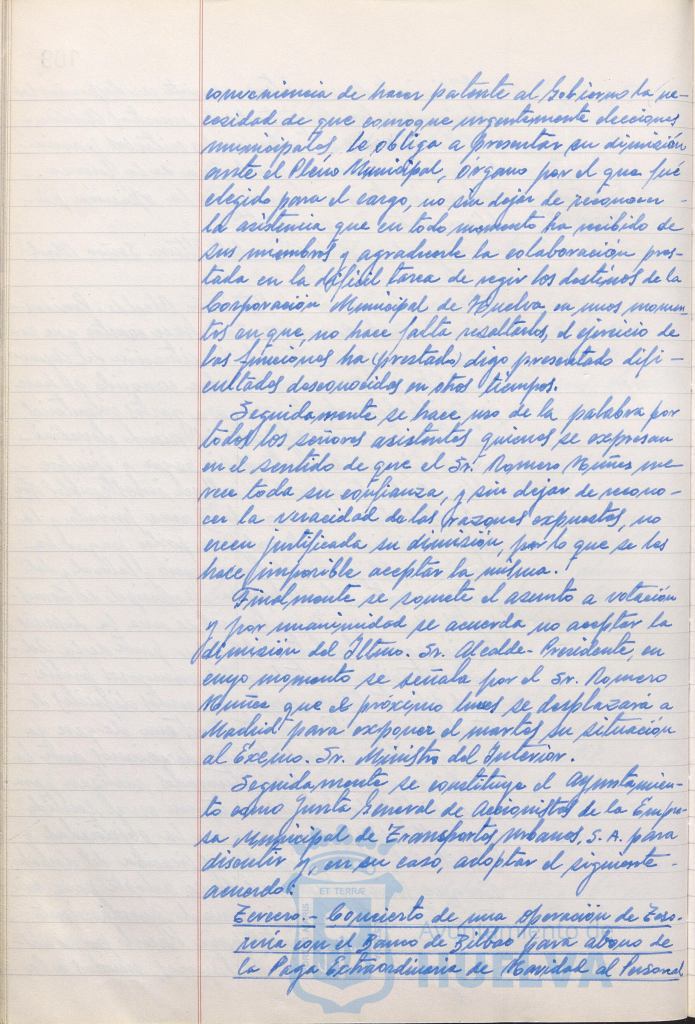 conveniencia de hacer patente al Gobierno la ne-
cesidad de que convoque urgentemente elecciones
municipales, le obliga a presentar su dimisión
ante el Pleno Municipal, Órgano por el que fué
elegido para el cargo, no sin dejar de reconocer
la asistencia que en todo momento ha recibido de
sus miembros y agradecerle la colaboración pres-
tada en la difícil tarea de regir los destinos de la
Corporación Municipal de Huelva en unos momen-
tos en que, no hace falta resaltarlos, el ejercicio de
las funciones ha (prestado) digo presentado difi-
cultades desconocidas en otros tiempos.
Seguidamente se hace uso de la palabra por
todos los señores asistentes quienes se expresan
en el sentido de que el Sr. Romero Núñez me-
rece toda su confianza, y sin dejar de recono-
cer la veracidad de las razones expuestas, no
creen justificada su dimisión, por lo que se les
hace imposible aceptar la misma.
Finalmente se somete el asunto a votación
y por unanimidad se acuerda no aceptar la
dimisión del Iltmo. Sr. Alcalde-Presidente, en
cuyo momento se señala por el Sr. Romero
Núñez que el próximo lunes se desplazará a
Madrid para exponer el martes su situación
al Excmo. Sr. Ministro del Interior.
Seguidamente se constituye el Ayuntamien-
to como Junta General de Accionistas de la Empre-
sa Municipal de Transportes Urbanos, S.A. para
discutir y, en su caso, adoptar el siguiente
acuerdo:
Tercero.- Concierto de una Operación de Teso-
rería con el Banco de Bilbao para abono de
la Paga Extraordinaria de Navidad al Personal
ET TERRÆ
Ayuntamiento de
HUELVA